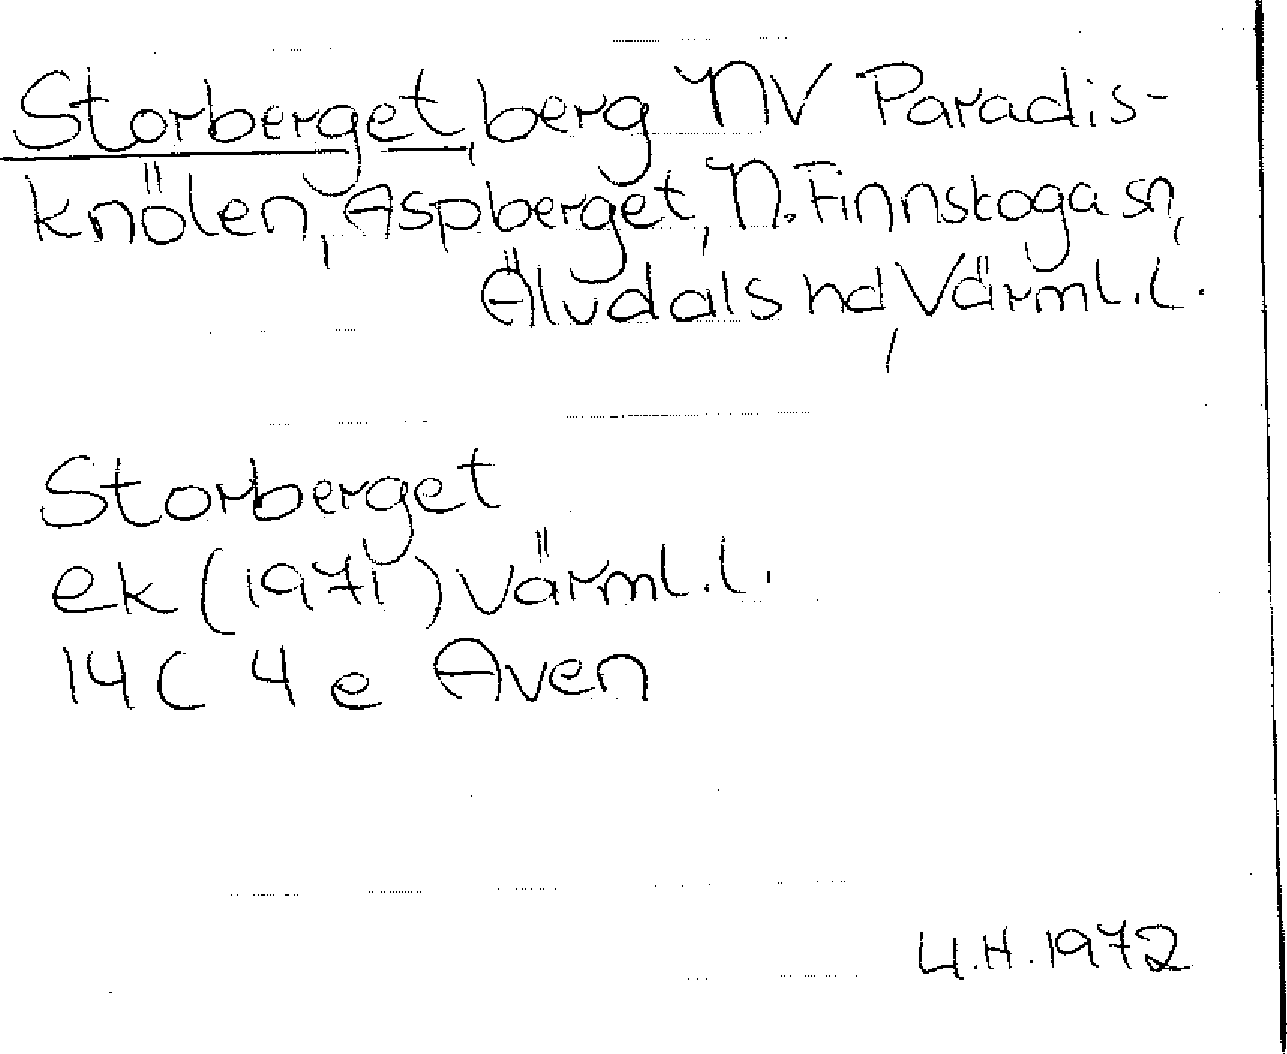 Storberget, berg NV Paradis-
knölen, Aspberget, N. Finnskoga sn,
Älvdals hd, Värml. l.
Storberget
ek (1971) Värml. l.
14C 4e Aven
U.H. 1972